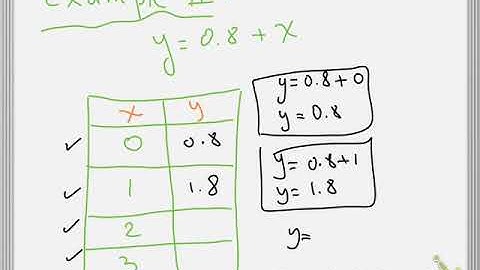 example II
y = 0.8 + x
x y
0 0.8
1 1.8
2
3
y = 0.8 + 0
y = 0.8
y = 0.8 + 1
y = 1.8
y =